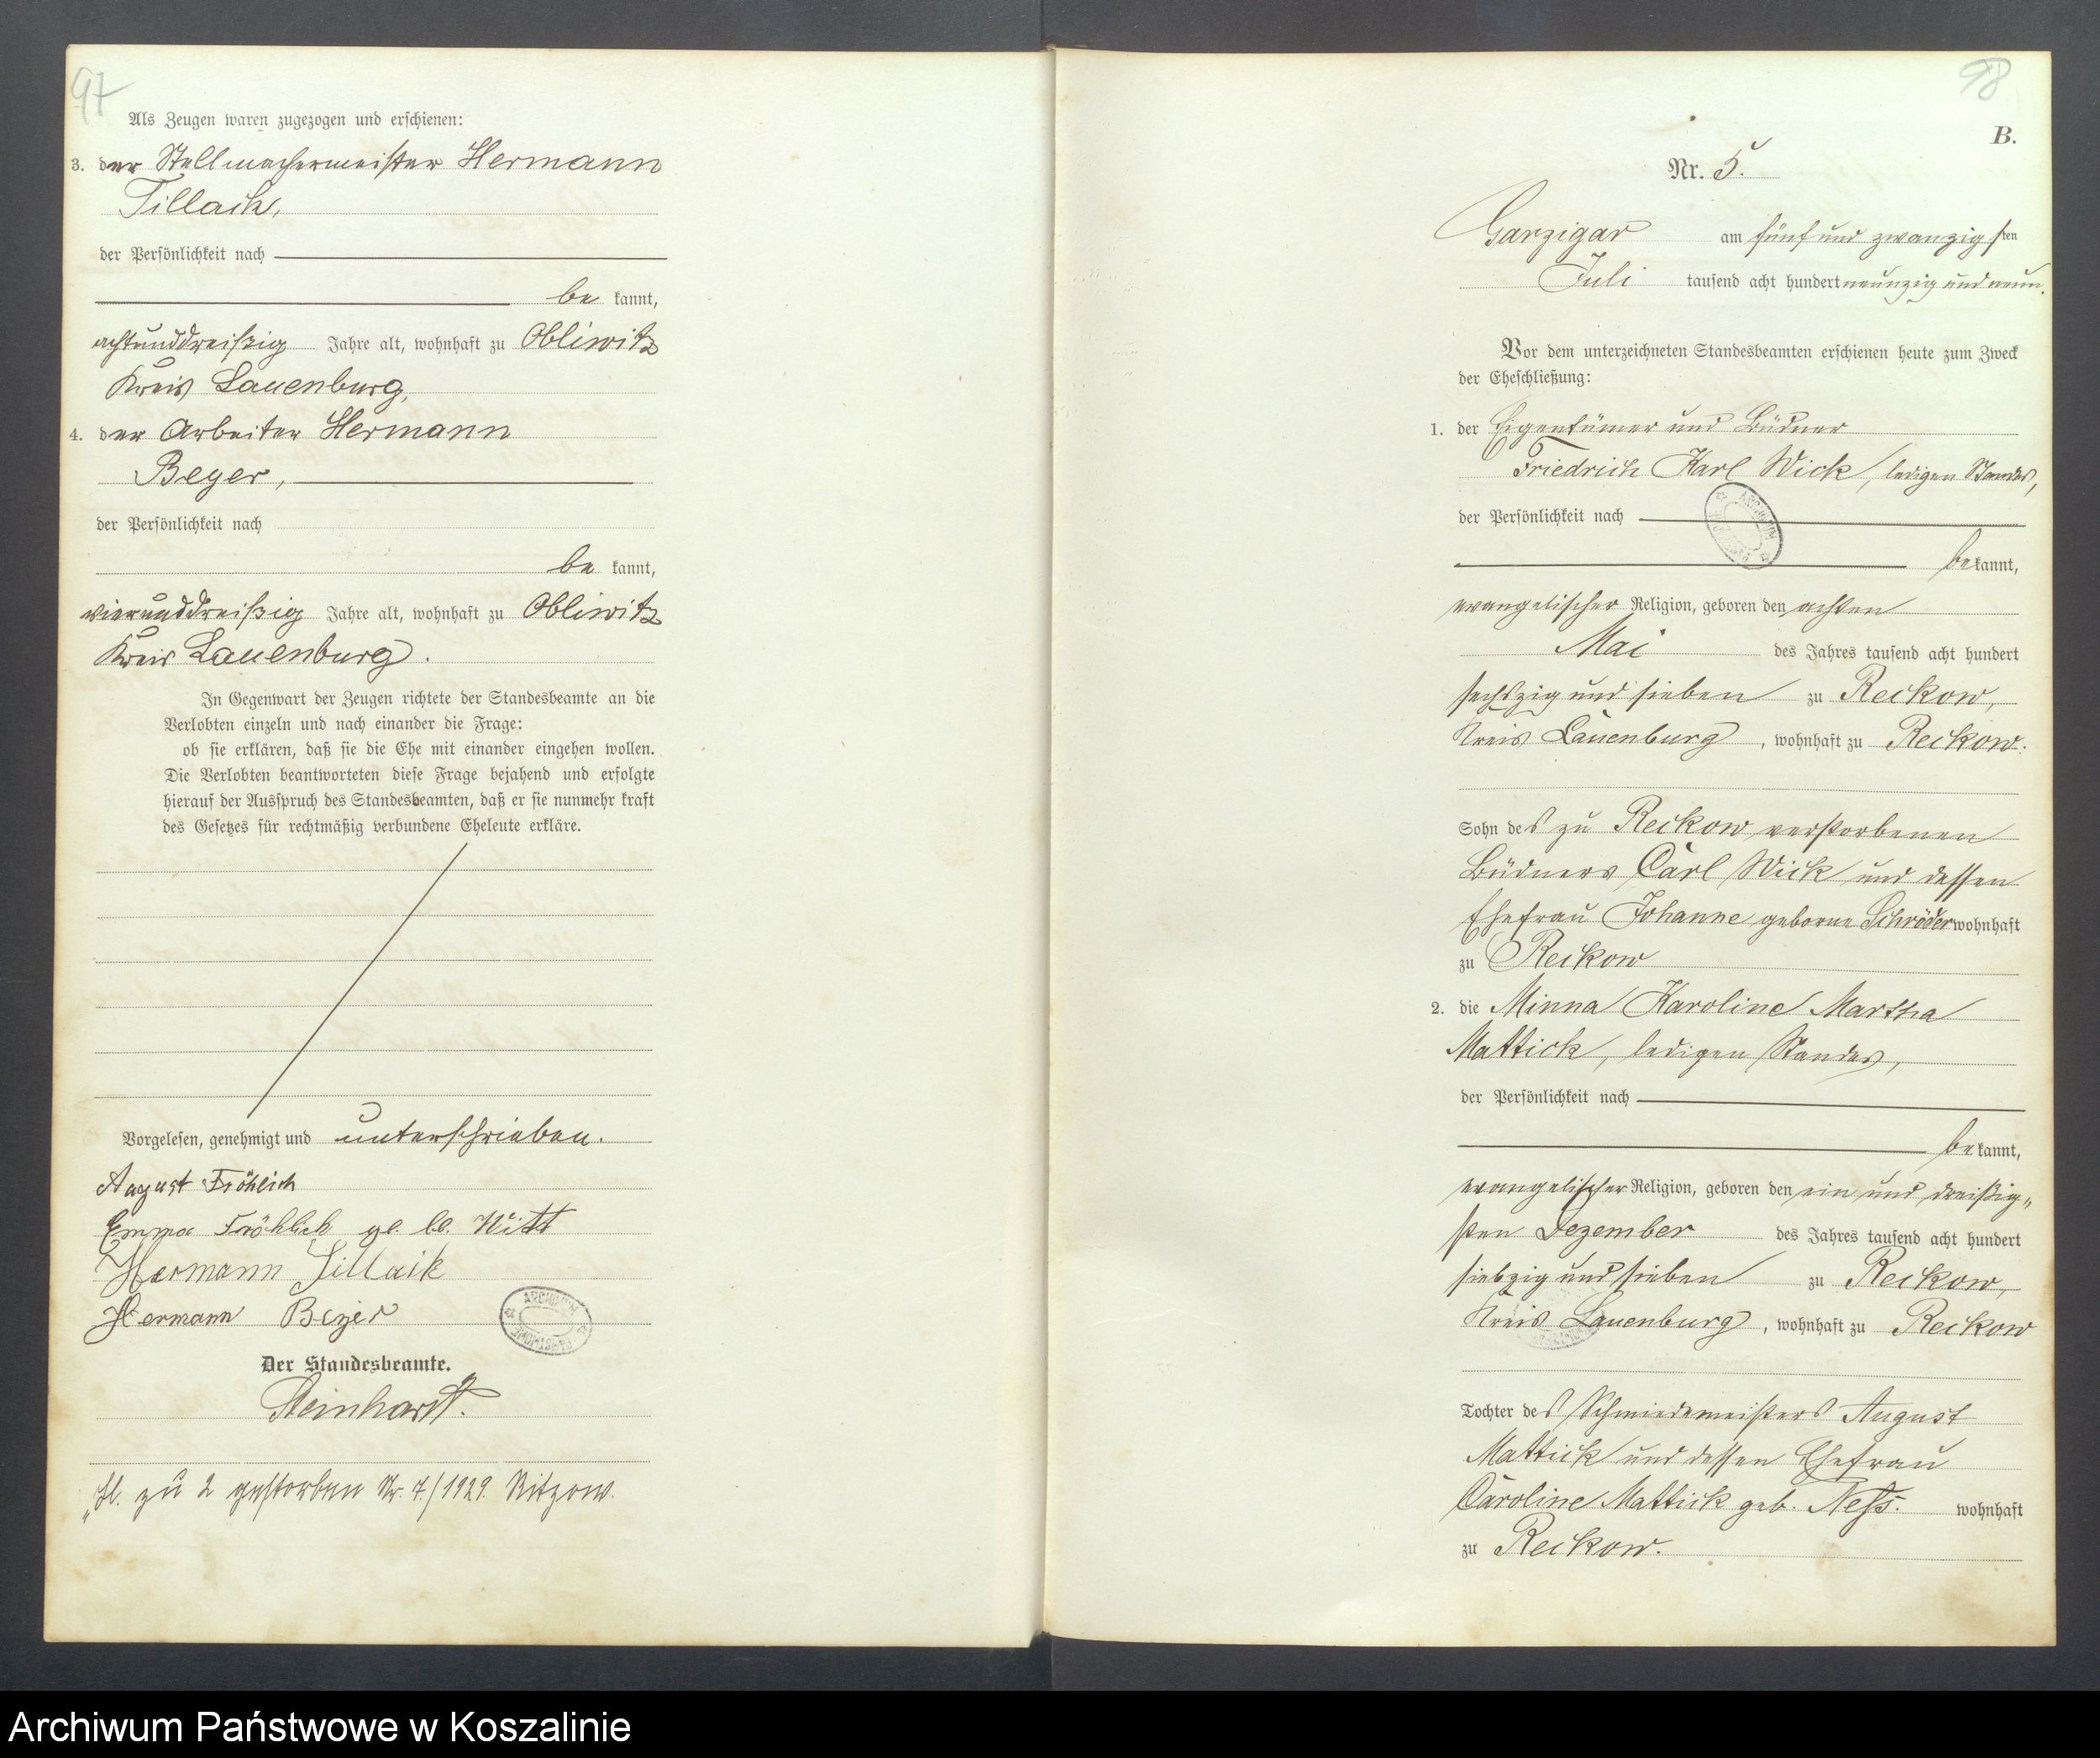 97
Als Zeugen waren zugezogen und erschienen:
3. der Stellmachermeister Hermann
Tillack,
der Persönlichkeit nach
be kannt,
achtunddreißig Jahre alt, wohnhaft zu Obliwitz
Kreis Lauenburg,
4. der Arbeiter Hermann
Beyer,
der Persönlichkeit nach
be kannt,
vierunddreißig Jahre alt, wohnhaft zu Obliwitz
Kreis Lauenburg.
In Gegenwart der Zeugen richtete der Standesbeamte an die
Verlobten einzeln und nach einander die Frage:
ob sie erklären, daß sie die Ehe mit einander eingehen wollen.
Die Verlobten beantworteten diese Frage bejahend und erfolgte
hierauf der Ausspruch des Standesbeamten, daß er sie nunmehr kraft
des Gesetzes für rechtmäßig verbundene Eheleute erkläre.
Vorgelesen, genehmigt und unterschrieben.
August Fröhlich
Emma Fröhlich ge. be. Witt
Hermann Tillack
Hermann Beyer
ARCHIWUM PAŃSTWOWE
Der Standesbeamte.
Steinhardt.
zu 2 gestorben Nr. 7/1929. Ritzow.
98
B.
Nr. 5.
Garzigar am fünf und zwanzigsten
Juli tausend acht hundert neunzig und neun.
Vor dem unterzeichneten Standesbeamten erschienen heute zum Zweck
der Eheschließung:
1. der Eigentümer und Büdner
Friedrich Karl Wick, ledigen Standes,
der Persönlichkeit nach
ARCHIWUM
bekannt,
evangelischer Religion, geboren den achten
Mai des Jahres tausend acht hundert
sechszig und sieben zu Reckow,
Kreis Lauenburg, wohnhaft zu Reckow.
Sohn des zu Reckow verstorbenen
Büdners Carl Wick und dessen
Ehefrau Johanne geborne Schröder wohnhaft
zu Reckow
2. die Minna Karoline Martha
Mattick, ledigen Standes,
der Persönlichkeit nach
bekannt,
evangelischer Religion, geboren den ein und dreißig„
sten Dezember des Jahres tausend acht hundert
siebzig und sieben zu Reckow,
Kreis Lauenburg, wohnhaft zu Reckow
Tochter des Schmiedemeisters August
Mattick und dessen Ehefrau
Caroline Mattick geb. Neß. wohnhaft
zu Reckow.
Archiwum Państwowe w Koszalinie